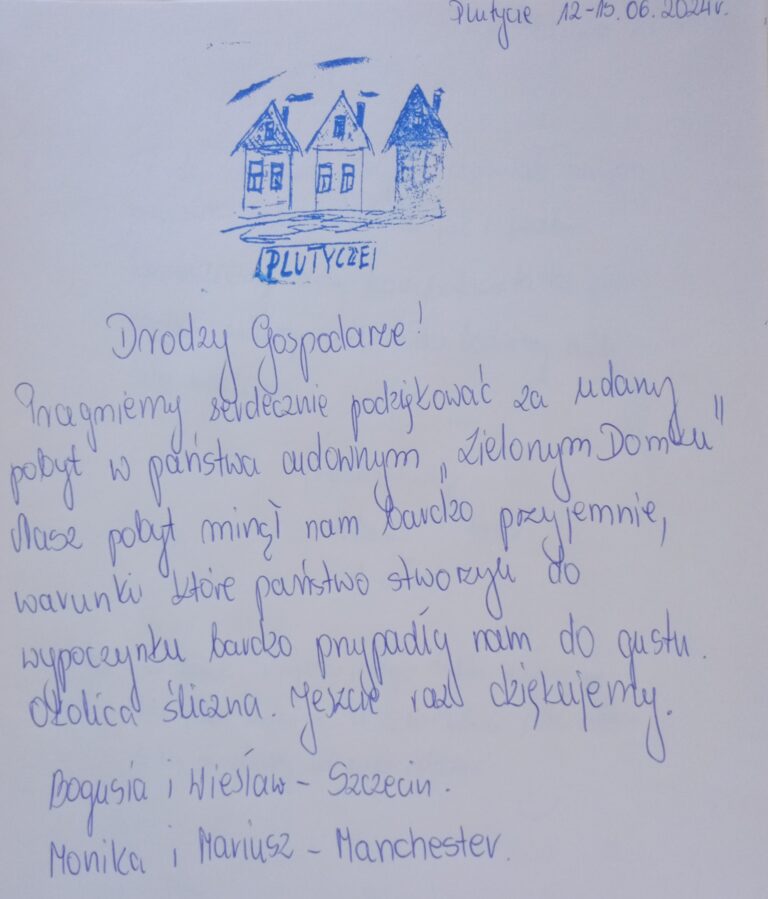 Plutycze 12-15.06.2024r.
PLUTYCZE
Drodzy Gospodarze!
Pragniemy serdecznie podziękować za udany
pobyt w państwa cudownym „Zielonym Domku"
Nasz pobyt minął nam bardzo przyjemnie,
warunki które państwo stworzyli do
wypoczynku bardzo przypadły nam do gustu.
Okolica śliczna. Jeszcze raz dziękujemy.
Bogusia i Wiesław - Szczecin.
Monika i Mariusz - Manchester.